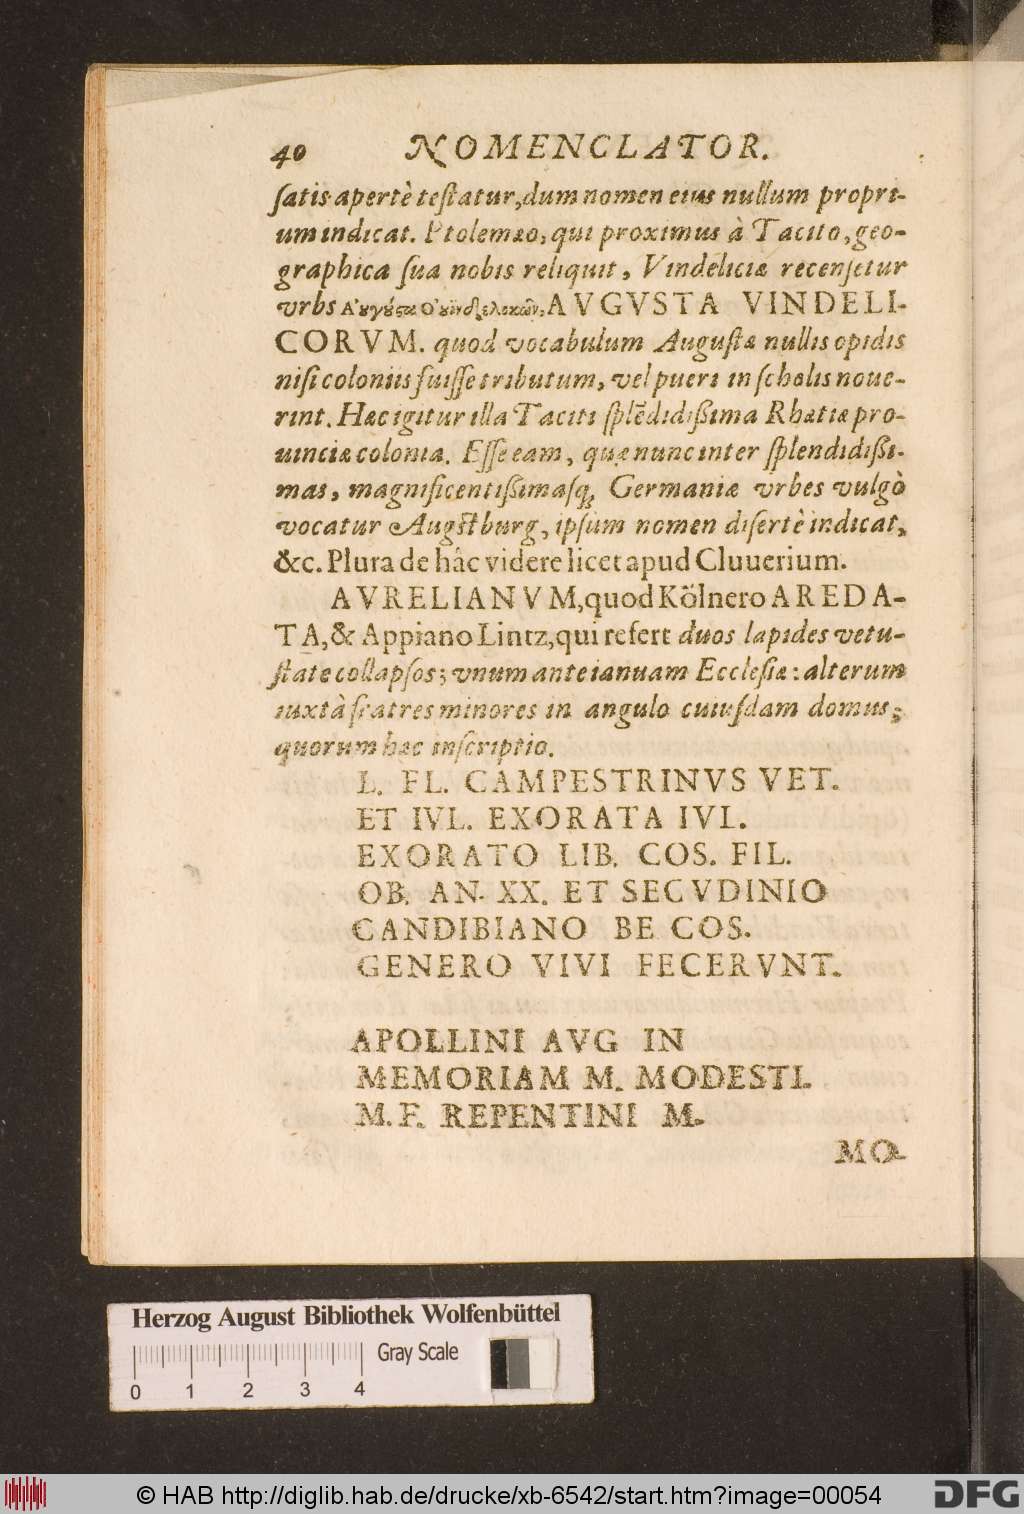 40 NOMENCLATOR.
ſatis apertè teſtatur, dum nomen eius nullum propri-
um indicat. Ptolemæo, qui proximus à Tacito, geo-
graphica ſua nobis reliquit, Vindeliciæ recenſetur
vrbs AVGVSTA VINDELI-
CORVM. quod vocabulum Auguſtæ nullis opidis
niſi coloniis fuiſſe tributum, vel pueri in ſcholis noue-
rint. Hæc igitur illa Taciti ſplẽdidißima Rhætiæ pro-
uinciæ colonia. Eſſe eam, quæ nunc inter ſplendidißi-
mas, magnificentißimaſq; Germaniæ vrbes vulgò
vocatur Augſtburg, ipſum nomen diſertè indicat,
&c. Plura de hâc videre licet apud Cluuerium.
AVRELIANVM, quod Kölnero AREDA-
TA, & Appiano Lintz, qui refert duos lapides vetu-
ſtate collapſos; vnum ante ianuam Eccleſiæ: alterum
iuxtà fratres minores in angulo cuiuſdam domus;
quorum hæc inſcriptio.
L. FL. CAMPESTRINVS VET.
ET IVL. EXORATA IVI.
EXORATO LIB. COS. FIL.
OB. AN. XX. ET SECVDINIO
CANDIBIANO BE COS.
GENERO VIVI FECERVNT.
APOLLINI AVG IN
MEMORIAM M. MODESTI.
M. F. REPENTINI M.
MO-
Herzog August Bibliothek Wolfenbüttel
Gray Scale
0 1 2 3 4
© HAB http://diglib.hab.de/drucke/xb-6542/start.htm?image=00054
DFG